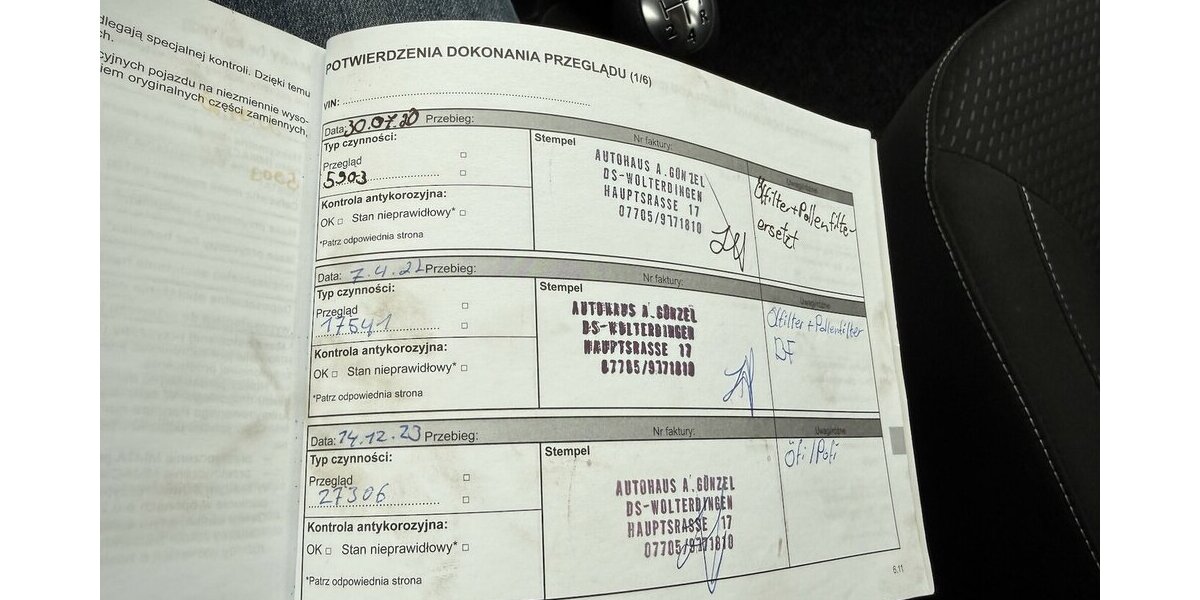 dlegają specjalnej kontroli. Dzięki temu
ch.
cyjnych pojazdu na niezmiennie wyso-
iem oryginalnych części zamiennych,
POTWIERDZENIA DOKONANIA PRZEGLĄDU (1/6)
VIN:
Data: 30.07.20 Przebieg: Nr faktury: Uwagi/różne
Typ czynności:
Przegląd
5903
Kontrola antykorozyjna:
OK □ Stan nieprawidłowy* □
*Patrz odpowiednia strona
Stempel
AUTOHAUS A.GÜNZEL
DS-WOLTERDINGEN
HAUPTSRASSE 17
07705/9771810
Ölfilter+Pollenfilter
ersetzt
Data: 7.4.22 Przebieg: Nr faktury: Uwagi/różne
Typ czynności:
Przegląd
17541
Kontrola antykorozyjna:
OK □ Stan nieprawidłowy* □
*Patrz odpowiednia strona
Stempel
AUTOHAUS A.GÜNZEL
DS-WOLTERDINGEN
HAUPTSRASSE 17
07705/9771810
Ölfilter+Pollenfilter
BF
Data: 14.12.23 Przebieg: Nr faktury: Uwagi/różne
Typ czynności:
Przegląd
27306
Kontrola antykorozyjna:
OK □ Stan nieprawidłowy* □
*Patrz odpowiednia strona
Stempel
AUTOHAUS A.GÜNZEL
DS-WOLTERDINGEN
HAUPTSRASSE 17
07705/9771810
Öfi/Pofi
6.11